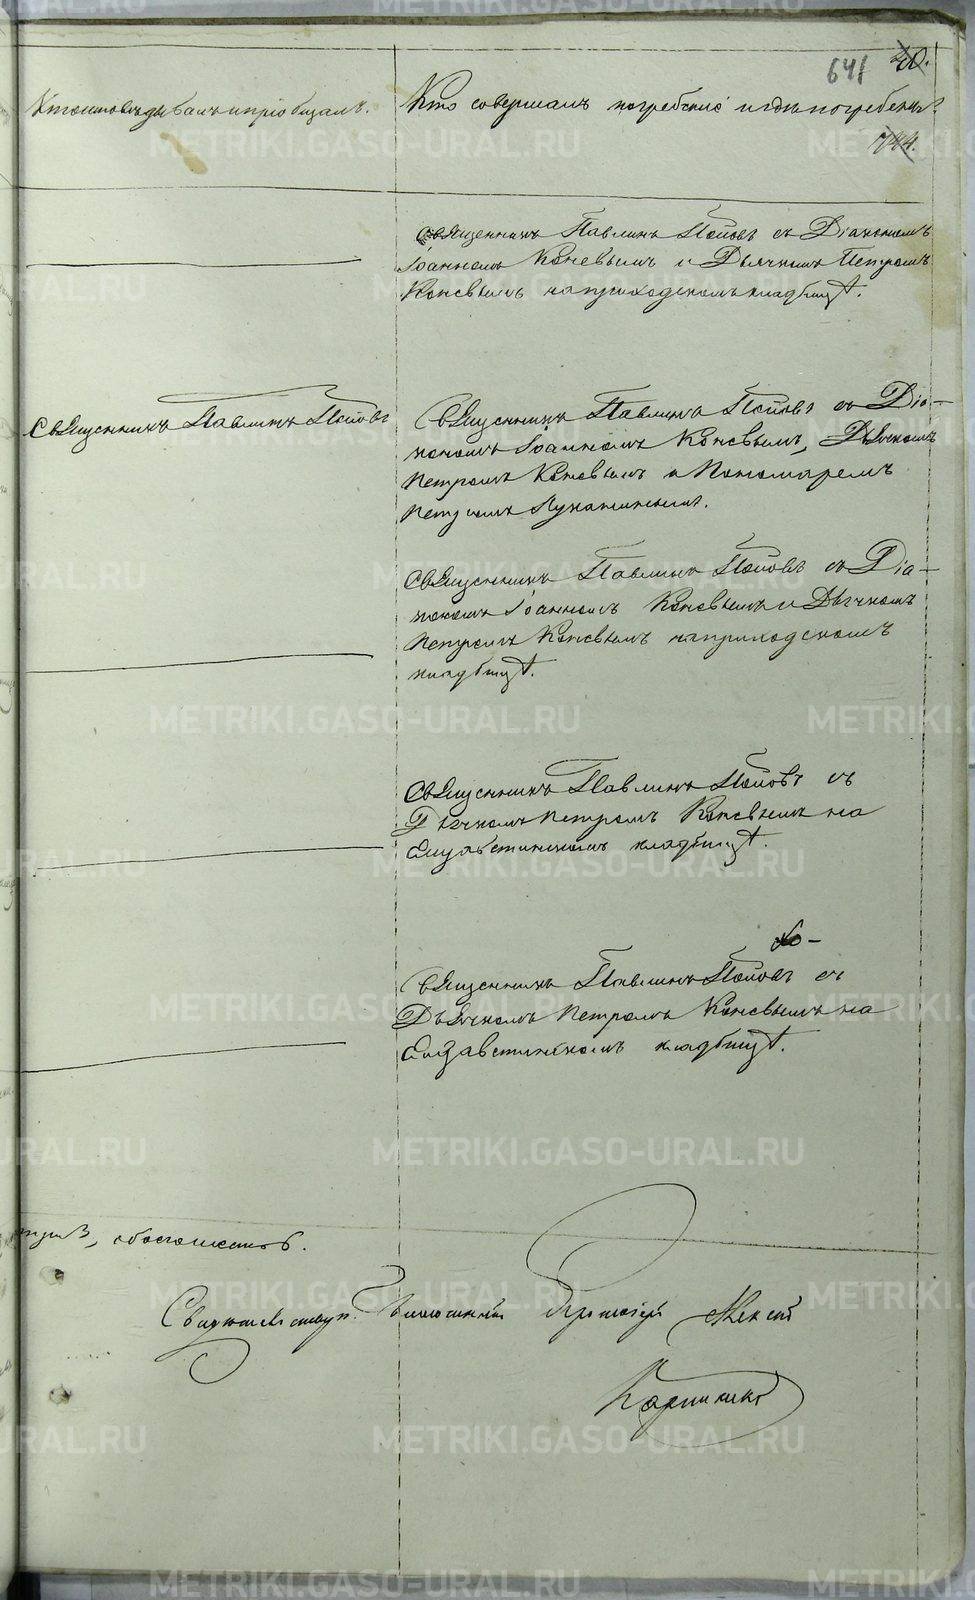 641 40.
Кто исповѣдывалъ и пріобщалъ.
Кто совершалъ погребеніе и гдѣ погребены?
744.
Священникъ Павлинъ Поповъ съ Діакономъ
Іоанномъ Коневымъ и Дьячкомъ Петромъ
Коневымъ на приходскомъ кладбищѣ.
Священникъ Павлинъ Поповъ
Священникъ Павлинъ Поповъ съ Діа-
кономъ Іоанномъ Коневымъ, Дьячкомъ
Петромъ Коневымъ и Пономаремъ
Петромъ
Священникъ Павлинъ Поповъ съ Діа-
кономъ Іоанномъ Коневымъ и Дьячкомъ
Петромъ Коневымъ на приходскомъ
кладбищѣ.
Священникъ Павлинъ Поповъ съ
Дьячкомъ Петромъ Коневымъ на
Елизаветинскомъ кладбищѣ.
Священникъ Павлинъ Поповъ съ
Дьячкомъ Петромъ Коневымъ на
Елизаветинскомъ кладбищѣ.
Свидѣтельствуетъ Благочинный Протоіерей Алексій
METRIKI.GASO-URAL.RU